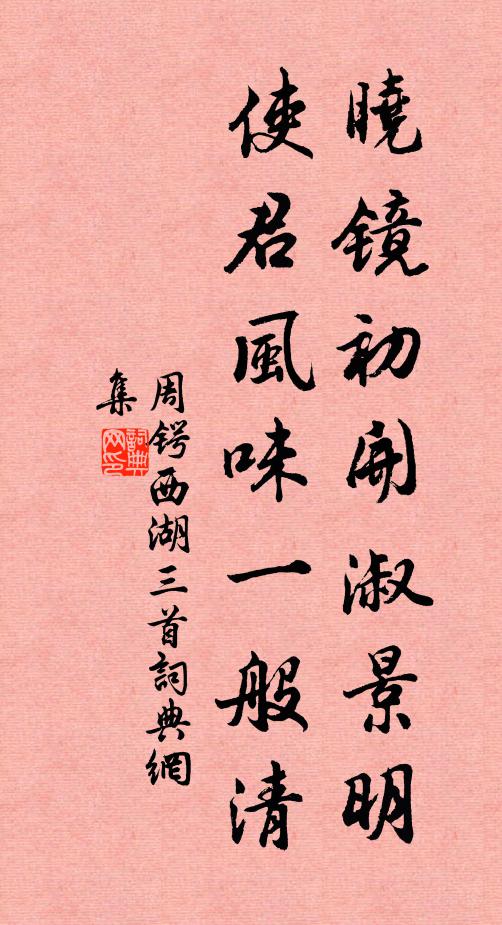 曉鏡初開淑景明
使君風味一般清
周鍔西湖三首詞典網
集
詞典
网印